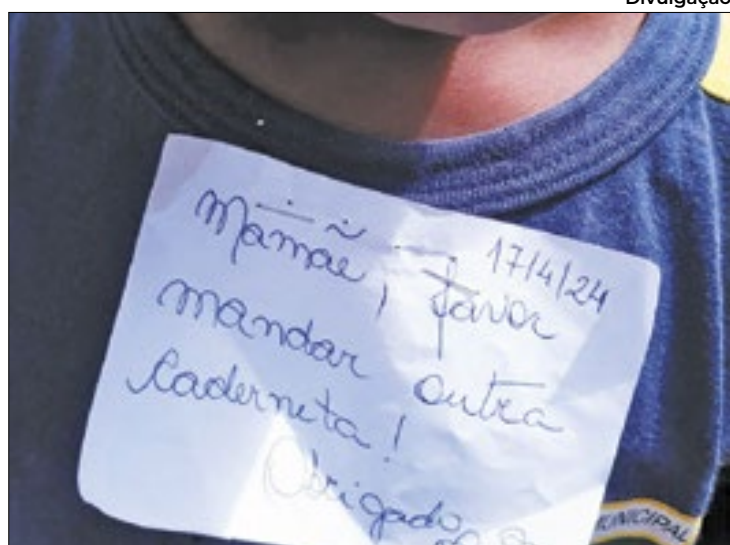 Divulgação
17/4/24
Mamãe, favor
mandar outra
caderneta!
Obrigado
MUNICIPAL